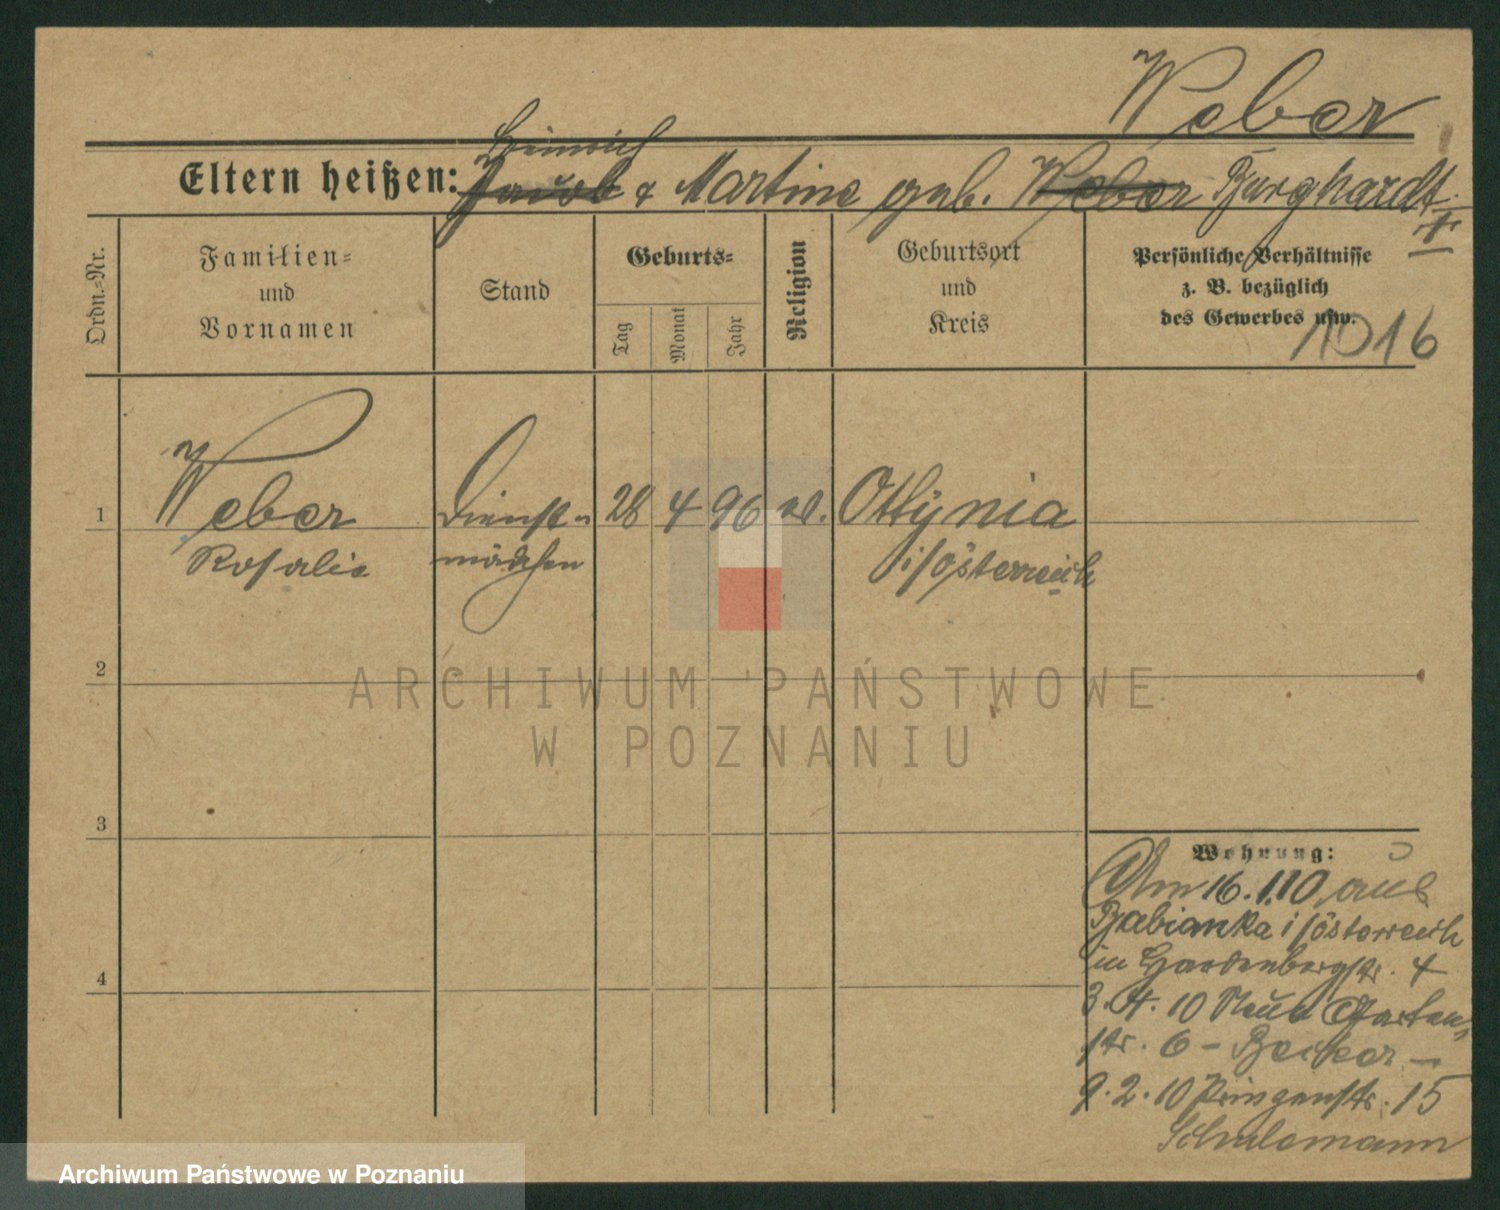 Weber
Heinrich
Eltern heißen: Jacob & Martine geb. Weber Burghardt
Ordn.=Nr.
Familien=
und
Vornamen
Stand
Geburts=
Tag
Monat
Jahr
Religion
Geburtsort
und
Kreis
Persönliche Verhältnisse
z. B. bezüglich
des Gewerbes usw.
11016
1
Weber
Rosalie
Dienst=
mädchen
28
4
96
ev.
Ottynia
i/österreich
2
3
4
Wohnung:
Am 16.1.10 aus
Babianka i/österreich
in Hardenbergstr. 4
3. 4. 10 Neue Garten
str. 6 - Becker -
9. 2. 10 Prinzenstr. 15
ARCHIWUM PAŃSTWOWE
W POZNANIU
Archiwum Państwowe w Poznaniu